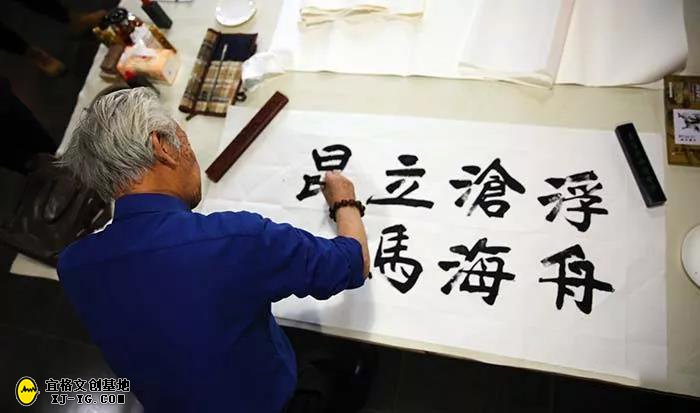 浮舟
滄海
立馬
昆
宜格文创基地
XJ-YG.COM